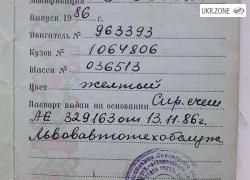 UKR.ZONE
Выпуск 1986 г.
Двигатель № 963393
Кузов № 1064806
Шасси № 036513
Цвет желтый
Паспорт выдан на основании Спр. счет
АЕ 329163 от 13.11.86г.
Львовавтотехобслуж.